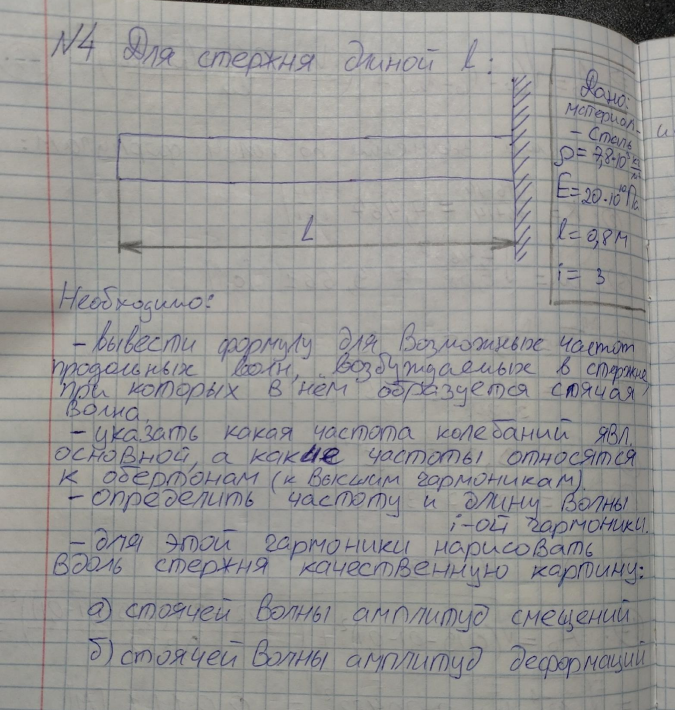 N4 Для стержня длиной l:
Дано:
материал -
- сталь
ρ = 7,8·10³ кг/м
E = 20·10¹⁰ Па
l = 0,8 м
i = 3
L
Необходимо:
- вывести формулу для возможных частот
продольных волн, возбуждаемых в стержне,
при которых в нём образуется стячая
волна.
- указать какая частота колебаний явл.
основной, а какие частоты относятся
к обертонам (к высшим гармоникам)
- определить частоту и длину волны
i-ой гармоники.
- для этой гармоники нарисовать
вдоль стержня качественную картину:
а) стоячей волны амплитуд смещений
б) стоячей волны амплитуд деформаций